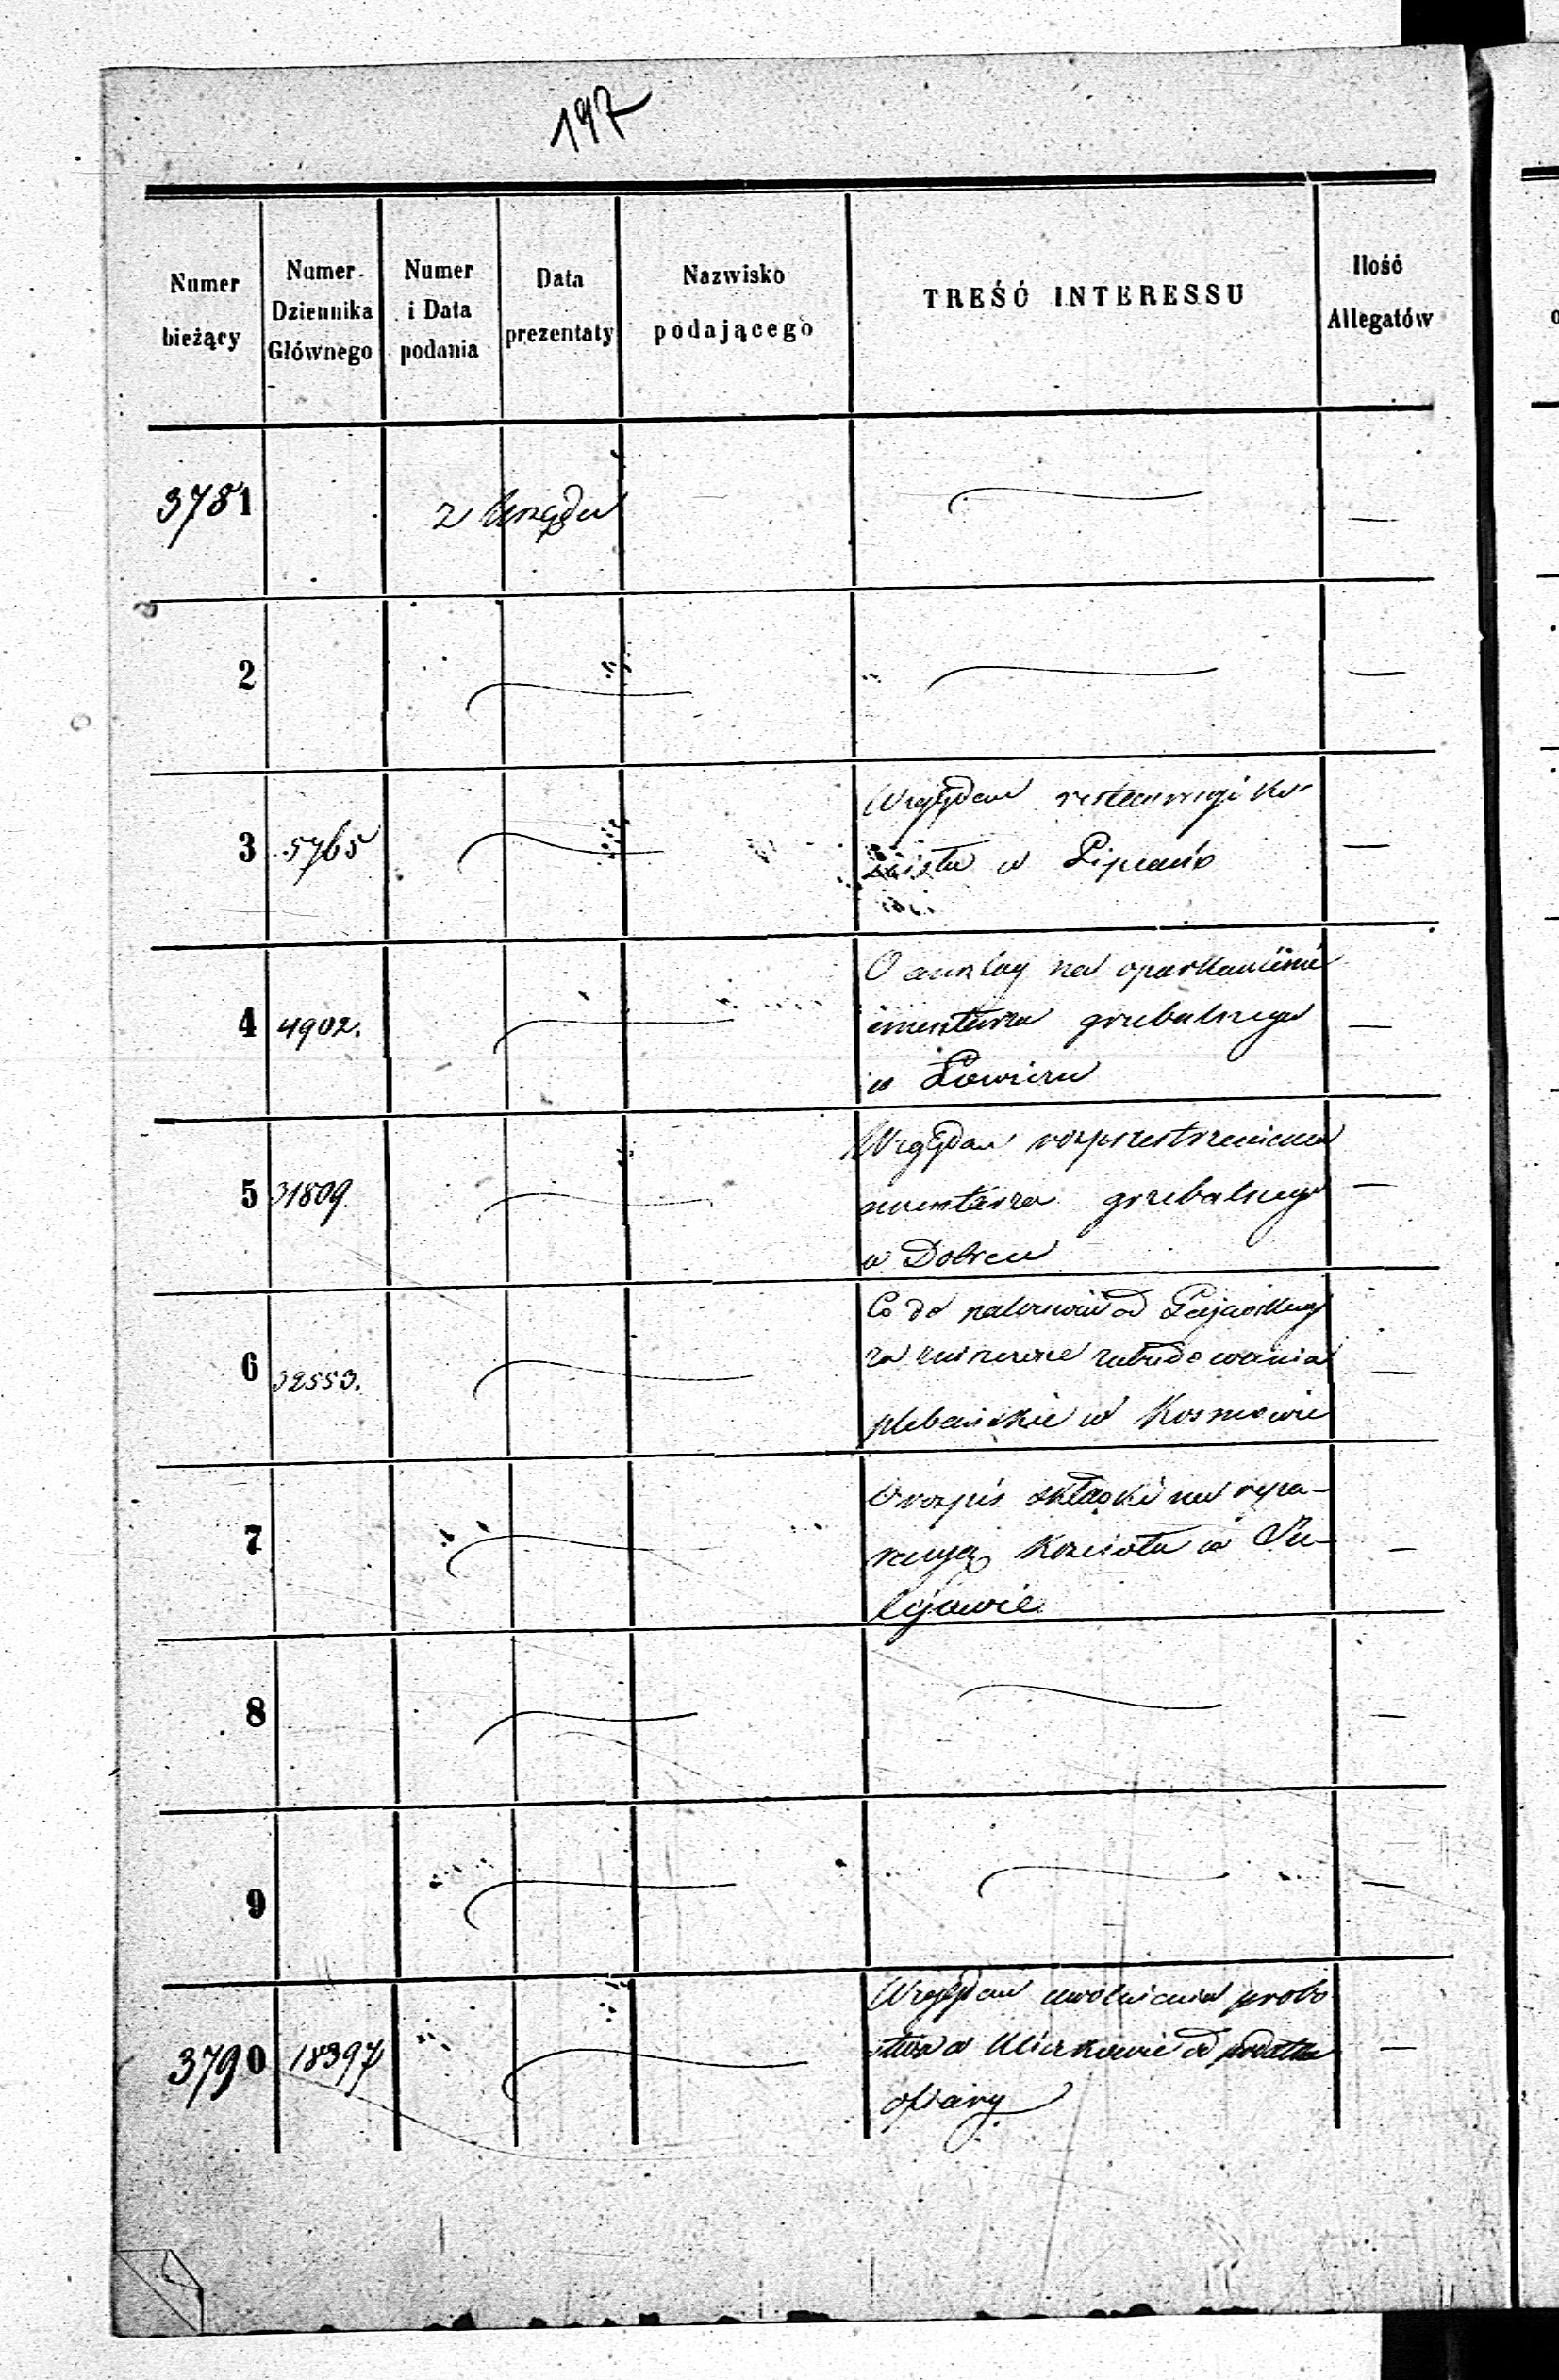 197
Numer bieżący
Numer Dziennika Głównego
Numer i Data podania
Data prezentaty
Nazwisko podającego
TREŚĆ INTERESSU
Ilość Allegatów
3781 z Urzędu —
2 —
3 5765 Względem restauracyi Ko-
ścioła w Lipnie —
4 4902. O anszlag na oparkanienie
cmentarza grzebalnego —
w Łowiczu
5 31809 Względem rozprzestrzenienia
cmentarza grzebalnego —
w Dobrcu
6 32553. Co do należności od
za zniszczone zabudowania —
plebańskie w Kosmowie
7 O rozpis składki na repa-
racyą Kościoła w Su- —
lejowie
8 —
9 —
3790 18397 Względem uwolnienia probo
stwa w od podatku —
ofiary